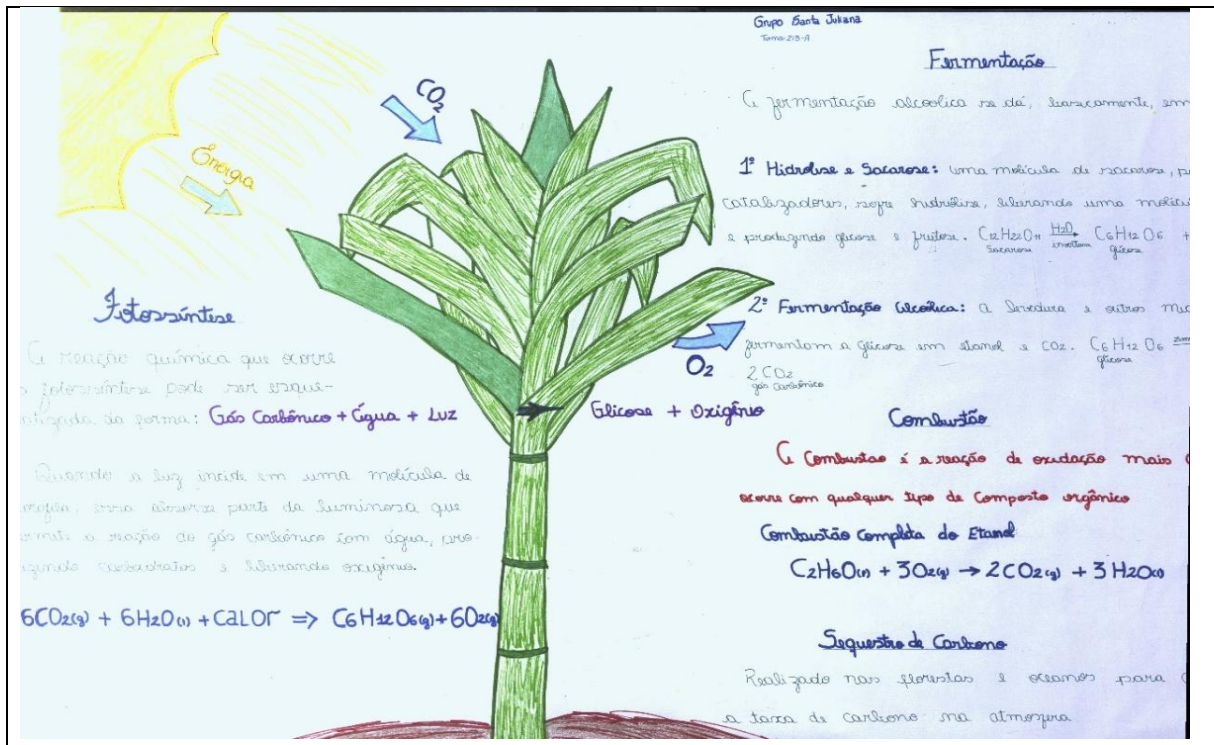 Grupo Santa Juliana
Turma-219-A
Energia
CO2
O2
Fotossíntese
A reação química que ocorre
fotossíntese pode ser esque-
da forma: Gás Carbônico + Água + Luz → Glicose + Oxigênio
Quando a luz incide em uma molécula de
essa absorve parte da luminosa que
a reação do gás carbônico com água, pro-
carboidratos e liberando oxigênio.
6CO2(g) + 6H2O(l) + CaLOr => C6H12O6(g) + 6O2(g)
Fermentação
A fermentação alcoolica se dá, basicamente, em
1º Hidrolise e Sacarose: uma molécula de sacarose, p
catalizadores, sofre hidrólise, liberando uma molécu
e produzindo glicose e frutose. C12H22O11 H2O→ C6H12O6 +
Sacarose invertase glicose
2º Fermentação Alcoólica: A levedura e outros mic
fermentam a glicose em etanol e CO2. C6H12O6
glicose
2 CO2
gás carbônico
Combustão
A Combustao é a reação de oxidação mais
ocorre com qualquer tipo de Composto orgânico
Combustão Completa do Etanol
C2H6O(l) + 3O2(g) → 2CO2(g) + 3H2O(l)
Sequestro de Carbono
Realizado nas florestas e oceanos para
a taxa de carbono na atmosfera